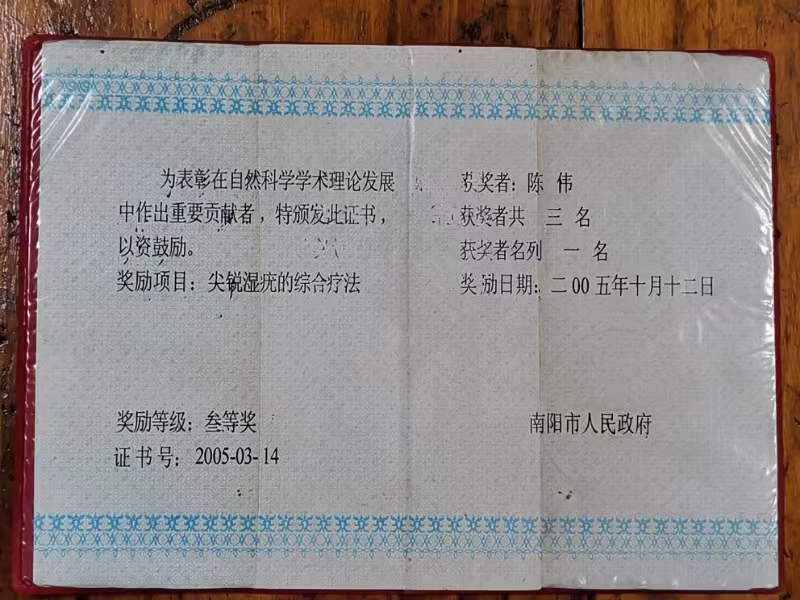 为表彰在自然科学学术理论发展
中作出重要贡献者，特颁发此证书，
以资鼓励。
奖励项目：尖锐湿疣的综合疗法
奖励等级：叁等奖
证书号：2005-03-14
获奖者：陈 伟
获奖者共 三 名
获奖者名列 一 名
奖励日期：二00五年十月十二日
南阳市人民政府